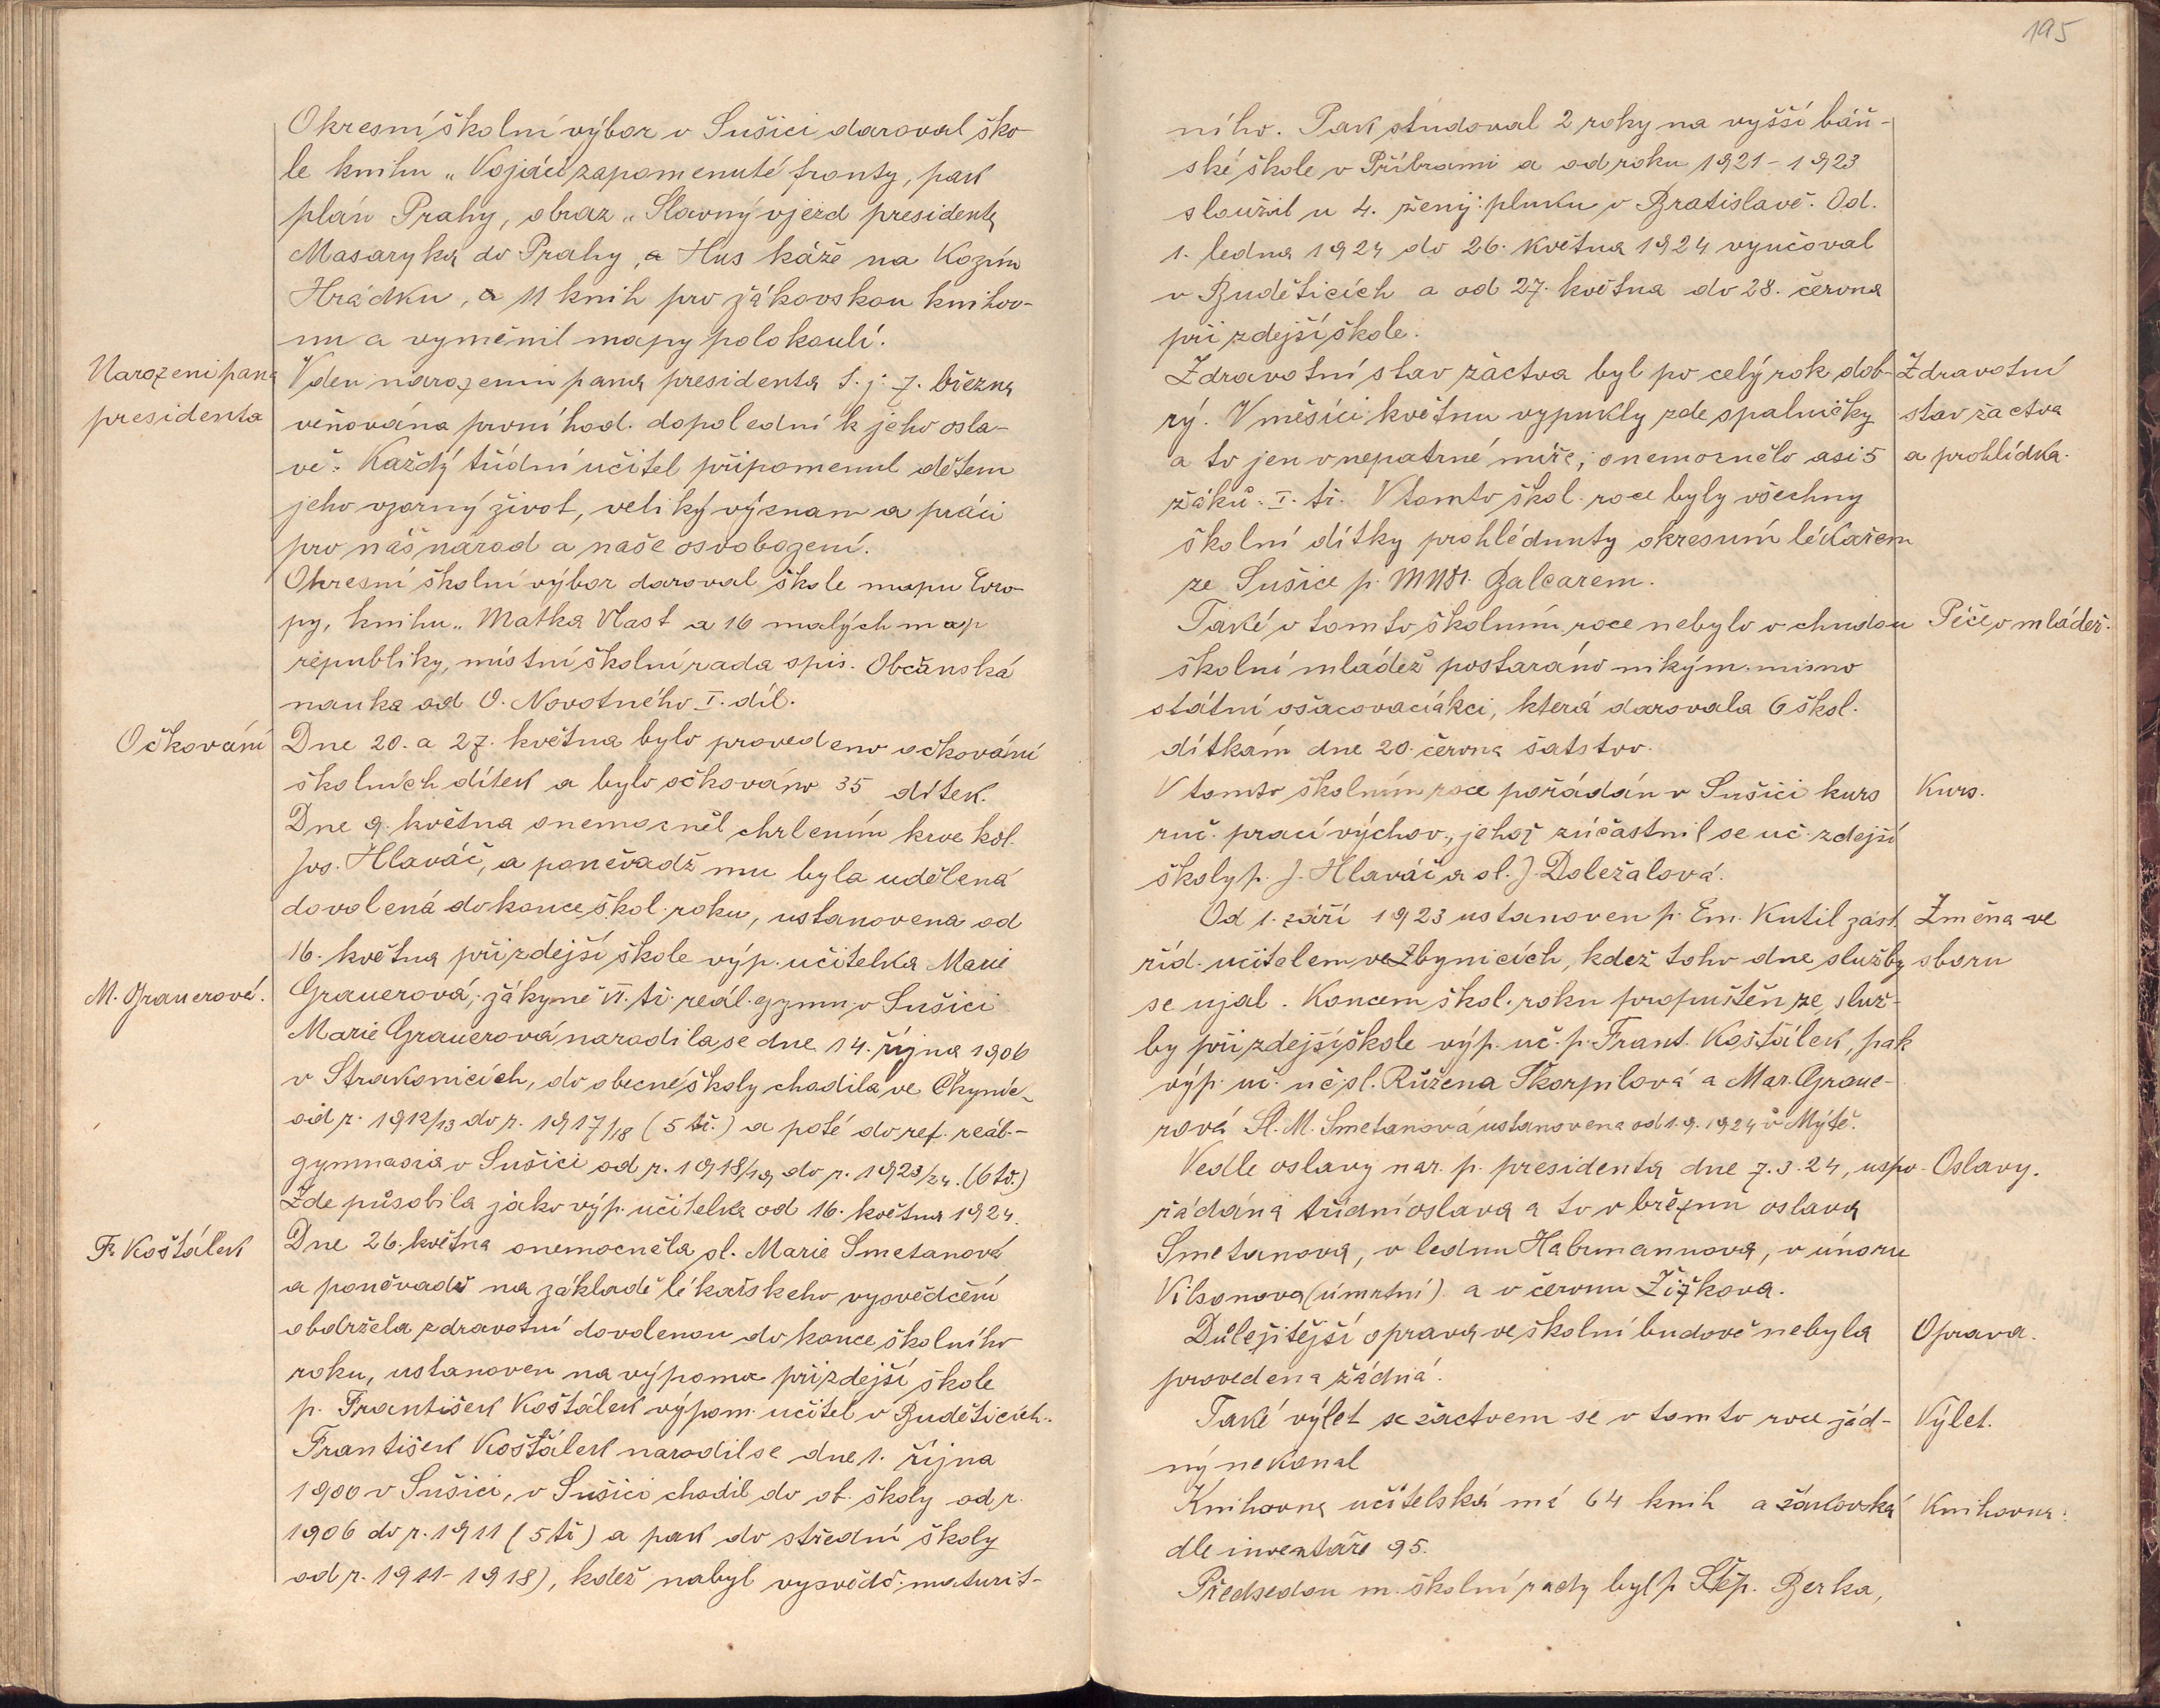 Okresní školní výbor v Sušici daroval ško-
le knihu „Vojáci zapomenuté fronty, pak
plán Prahy, obraz „Slavný vjezd presidenta
Masaryka do Prahy, a Hus káže na Kozím
Hrádku, a 11 knih pro žákovskou knihov-
nu a vyměnil mapy polokoulí.
Narození pana
presidenta
V den narozenin pana presidenta t. j. 7. března
věnována první hod. dopolední k jeho osla-
vě. Každý třídní učitel připomenul dětem
jeho vzorný život, veliký význam a práci
pro náš národ a naše osvobození.
Okresní školní výbor daroval škole mapu Evro-
py, knihu „Matka Vlast a 16 malých map
republiky, místní školní rada spis. Občanská
nauka od O. Novotného I. díl.
Očkování
Dne 20. a 27. května bylo provedeno očkování
školních dítek a bylo očkováno 35 dítek.
Dne 9. května onemocněl chrlením krve kol.
Jos. Hlaváč, a poněvadž mu byla udělená
dovolená do konce škol. roku, ustanovena od
16. května při zdejší škole výp. učitelka Marie
M. Grauerová.
Grauerová, žákyně VI. tř. reál. gymn. v Sušici
Marie Grauerová narodila se dne 14. října 1906
v Strakonicích, do obecné školy chodila ve Čkyni-
od r. 1912/13 do r. 1917/18 (5 tř.) a poté do ref. reál.-
gymnasia v Sušici od r. 1918/19 do r. 1923/24. (6 tř.)
Zde působila jako výp. učitelka od 16. května 1924.
Fr. Košťálek
Dne 26. května onemocněla sl. Marie Smetanová
a poněvadž na základě lékařskeho vysvědčení
obdržela zdravotní dovolenou do konce školního
roku, ustanoven na výpomoc při zdejší škole
p. František Košťálek výpom. učitel v Budětících.
František Košťálek narodil se dne 1. října
1900 v Sušici, v Sušici chodil do ob. školy od r.
1906 do r. 1911 (5 tř) a pak do střední školy
od r. 1911-1918), kdež nabyl vysvědč. maturit-
195
ního. Pak studoval 2 roky na vyšší báň-
ské škole v Příbrami a od roku 1921-1923
sloužil u 4. ženij. pluku v Bratislavě. Od.
1. ledna 1924 do 26. května 1924 vyučoval
v Buděticích a od 27. května do 28. června
při zdejší škole.
Zdravotní stav žactva byl po celý rok dob-
rý. V měsíci květnu vypukly zde spalničky
a to jen v nepatrné míře, onemocnělo asi 5
žáků. I. tř. V tomto škol. roce byly všechny
školní dítky prohlédnuty okresním lékařem
ze Sušice p. MUDr. Balcarem.
Zdravotní
stav žactva
a prohlídka.
Také v tomto školním roce nebylo o chudou
školní mládež postaráno nikým. mimo
státní ošacovací akci, která darovala 6 škol.
dítkám dne 20. června šatstvo.
Péče o mládež.
V tomto školním roce pořádán v Sušici kurs
ruč. prací výchov., jehož zúčastnil se uč. zdejší
školy p. J. Hlaváč a sl. J. Doležalová.
Kurs.
Od 1. září 1923 ustanoven p. Em. Kutil zást.
říd. učitelem ve Zbynicích, kdež toho dne služby
se ujal. Koncem škol. roku propuštěn ze služ-
by při zdejší škole výp. uč. p. Frant. Košťálek, pak
výp. uč. uč. sl. Růžena Škorpilová a Mar. Graue-
rová Sl. M. Smetanová ustanovena od 1.9. 1924 v Mýtě.
Změna ve
sboru
Vedle oslavy nar. p. presidenta dne 7.3.24, uspo-
řádána třídní oslava a to v březnu oslava
Smetanova, v lednu Habrmannova, v únoru
Vilsonova (úmrtní) a v červnu Žižkova.
Oslavy.
Důležitější oprava ve školní budově nebyla
provedena žádná.
Oprava.
Také výlet se žactvem se v tomto roce žád-
ný nekonal
Výlet.
Knihovna učitelská má 64 knih a žákovská
dle inventáře 95.
Knihovna.
Předsedou m. školní rady byl p. Štěp. Berka,